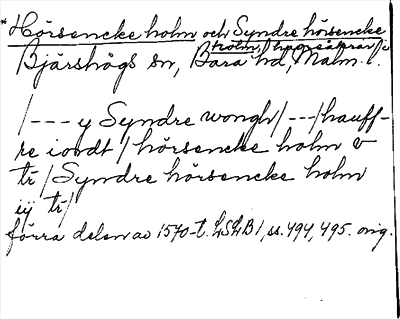 *Hörsencke holm och Syndre hörsencke
holm, (
Bjärshögs sn, Bara hd, Malm. l.
/--- y Syndre wongh/---/hauff-
re iordt/hörsencke holm v
tr/Syndre hörsencke holm
iÿ tr/
förra delen av 1570-t. LSLB1, ss. 494, 495. orig.